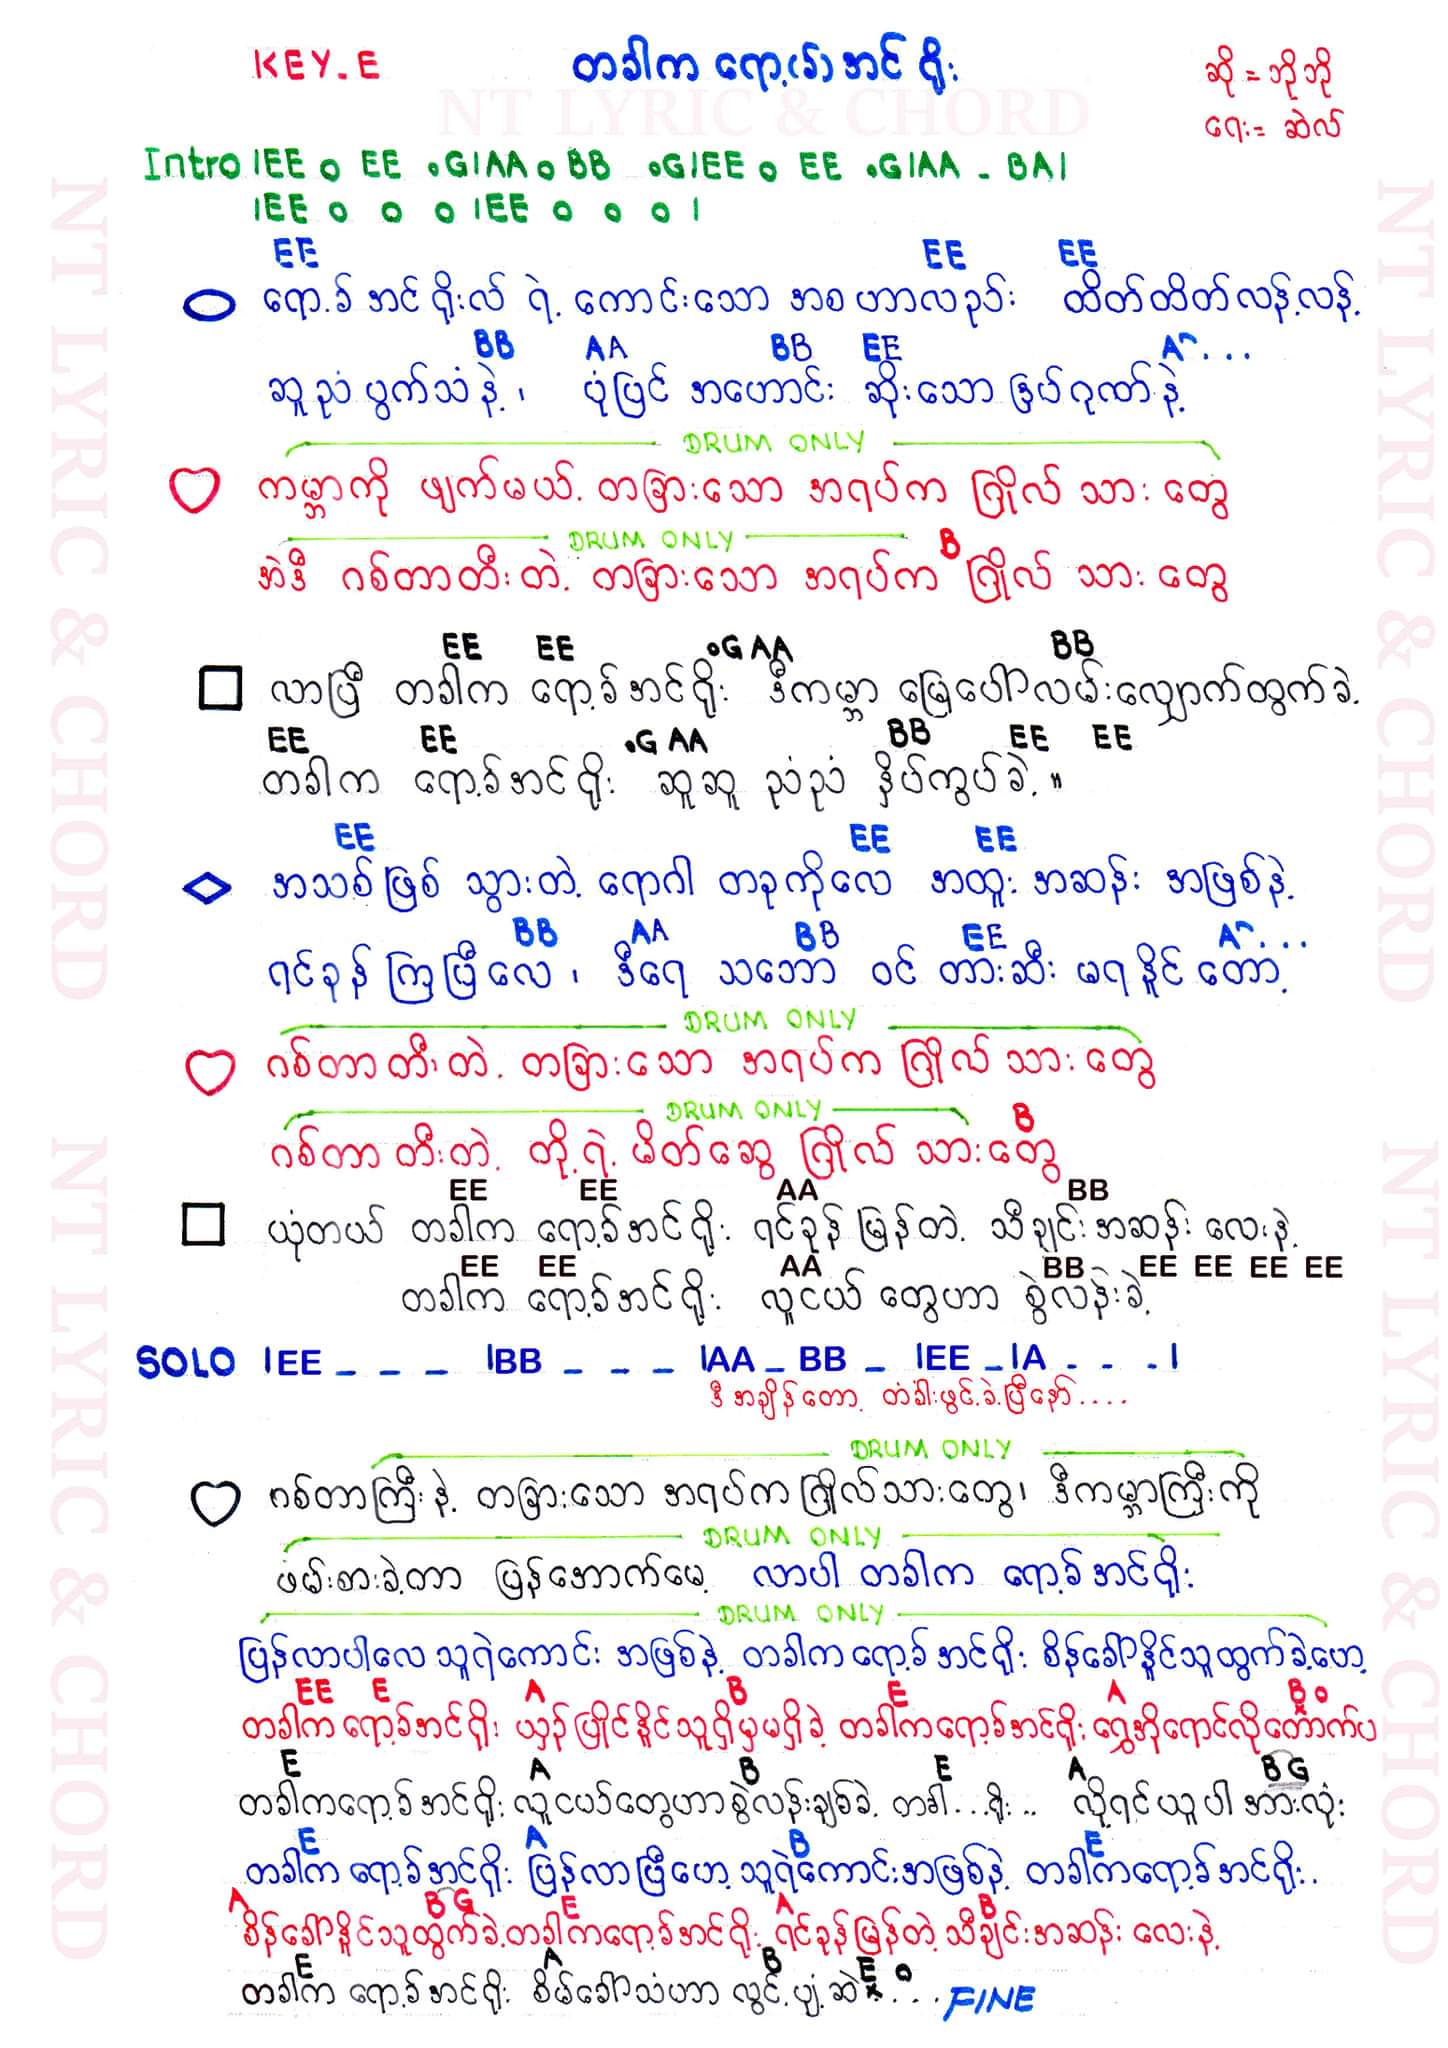 KEY.E တခါက ရော့(ခ်) အင် ရိုး ဆို = ဘိုဘို
ရေး = ဆဲလ်
NT LYRIC & CHORD
Intro |EE o EE .G|AA o BB .G|EE o EE .G|AA - BA|
|EE o o o |EE o o o |
EE EE EE
ရော့.ခ် အင် ရိုးလ် ရဲ့ ကောင်းသော အစ ဟာလည်း ထိတ်ထိတ်လန့်လန့်
BB AA BB EE A^...
ဆူညံ ပွက်သံနဲ့ ၊ ပုံပြင် အဟောင်း ဆိုးသော ဒြပ်ဂုဏ်နဲ့
DRUM ONLY
ကမ္ဘာကို ဖျက်မယ့် တခြားသော အရပ်က ဂြိုလ် သား တွေ
DRUM ONLY B
အဲဒီ ဂစ်တာတီးတဲ့ တခြားသော အရပ်က ဂြိုလ် သား တွေ
EE EE .G AA BB
လာပြီ တခါက ရော့ခ်အင်ရိုး ဒီကမ္ဘာ မြေပေါ်လမ်းလျှောက်ထွက်ခဲ့
EE EE .G AA BB EE EE
တခါက ရော့ခ်အင်ရိုး ဆူဆူ ညံညံ နှိပ်ကွပ်ခဲ့ ။
EE EE EE
အသစ်ဖြစ် သွားတဲ့ ရောဂါ တခုကိုလေ အထူး အဆန်း အဖြစ်နဲ့
BB AA BB EE A^...
ရင်ခုန် ကြပြီလေ ၊ ဒီရေ သဘော ဝင် တားဆီး မရ နိုင် တော့
DRUM ONLY
ဂစ်တာ တီးတဲ့ တခြားသော အရပ်က ဂြိုလ် သား တွေ
DRUM ONLY B
ဂစ်တာ တီးတဲ့ တို့ရဲ့ မိတ်ဆွေ ဂြိုလ် သားတွေ
EE EE AA BB
ယုံတယ် တခါက ရော့ခ်အင်ရိုး ရင်ခုန် မြန်တဲ့ သီချင်းအဆန်း လေးနဲ့
EE EE AA BB EE EE EE EE
တခါက ရော့ခ်အင်ရိုး လူငယ် တွေဟာ စွဲလန်းခဲ့
SOLO |EE _ _ _ |BB _ _ _ |AA _ BB _ |EE _ |A - - - |
ဒီအချိန်တော့ တံခါးဖွင့်ခဲ့ပြီနော်....
DRUM ONLY
ဂစ်တာကြီးနဲ့ တခြားသော အရပ်က ဂြိုလ်သားတွေ၊ ဒီကမ္ဘာကြီးကို
DRUM ONLY
ဖမ်းစားခဲ့တာ ပြန်အောက်မေ့ လာပါ တခါက ရော့ခ်အင်ရိုး
DRUM ONLY
ပြန်လာပါလေ သူရဲကောင်း အဖြစ်နဲ့ တခါကရော့ခ်အင်ရိုး စိန်ခေါ်နိုင်သူထွက်ခဲ့ဟေ့
EE E A B E A B o
တခါက ရော့ခ်အင်ရိုး ယှဉ်ပြိုင်နိုင်သူရှိမှမရှိခဲ့ တခါကရော့ခ်အင်ရိုး ရွှေအိုရောင်လိုတောက်ပ
E A B E A B G
တခါကရော့ခ်အင်ရိုး လူငယ်တွေဟာစွဲလန်းချစ်ခဲ့ တခါ...ရိုး.. လိုရင်ယူပါ အားလုံး
E A B E
တခါက ရော့ခ်အင်ရိုး ပြန်လာပြီဟေ့ သူရဲကောင်းအဖြစ်နဲ့ တခါကရော့ခ်အင်ရိုး..
A B G E A B
စိန်ခေါ်နိုင်သူထွက်ခဲ့ တခါကရော့ခ်အင်ရိုး ရင်ခုန်မြန်တဲ့ သီချင်းအဆန်း လေးနဲ့
E A B E o
တခါက ရော့ခ်အင်ရိုး စိမ်ခေါ်သံဟာ လွင့်ပျံ့ဆဲ... FINE
NT LYRIC & CHORD
NT LYRIC & CHORD
NT LYRIC & CHORD
NT LYRIC & CHORD